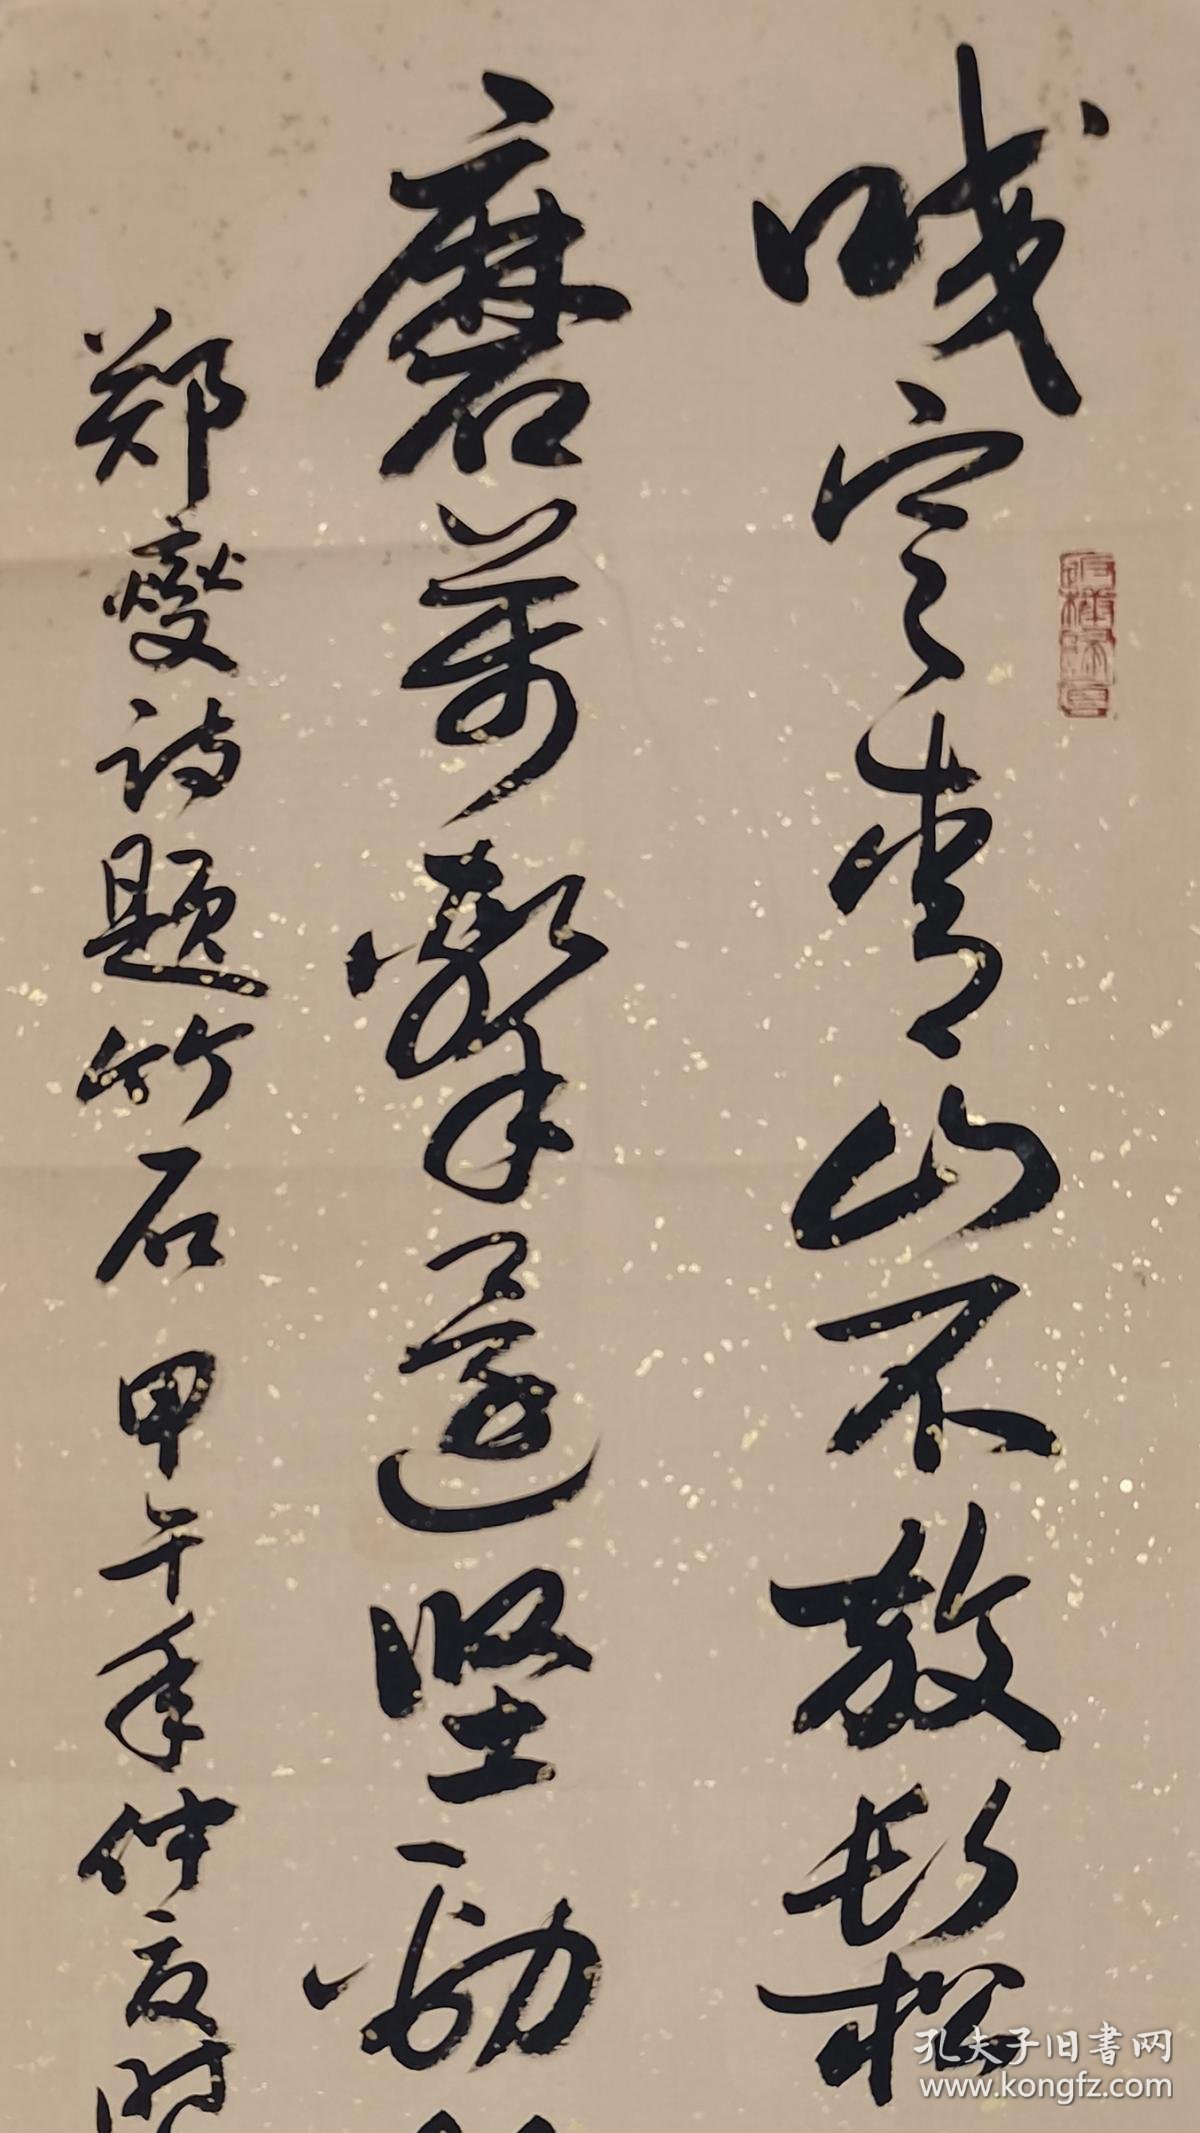 咬定青山不放鬆
磨萬擊還坚劲
郑燮诗题竹石 甲午年仲夏
孔夫子旧書网
www.kongfz.com